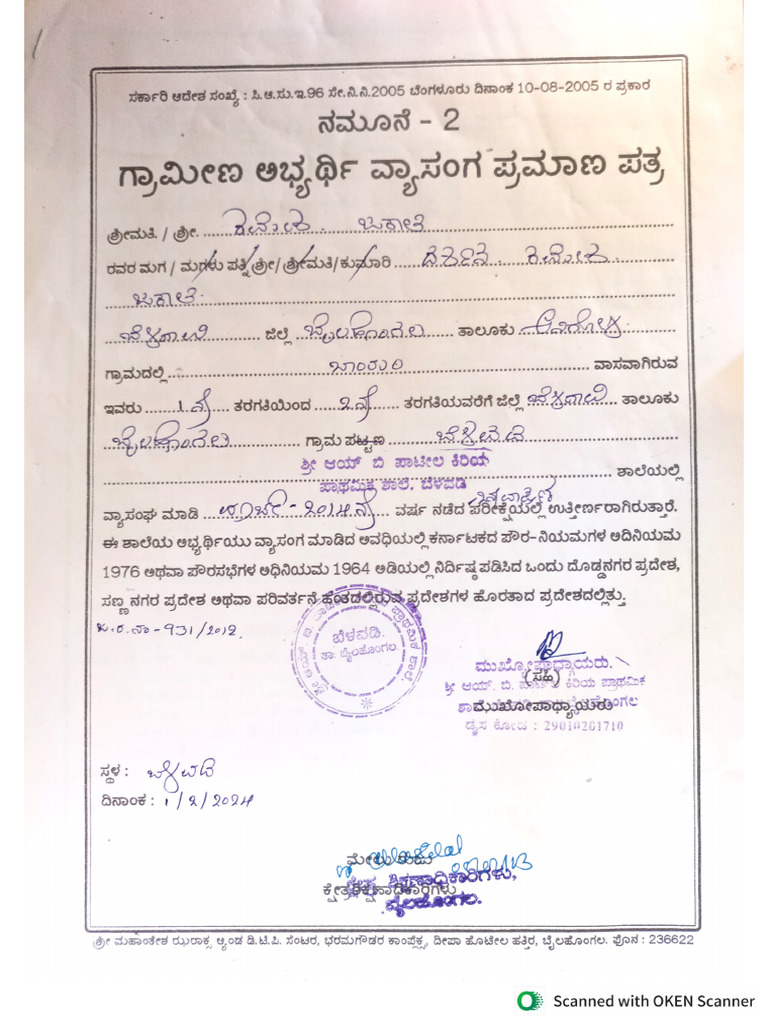 ಸರ್ಕಾರಿ ಆದೇಶ ಸಂಖ್ಯೆ : ಸಿ.ಆ.ಸು.ಇ.96 ಸೇ.ನಿ.ನಿ.2005 ಬೆಂಗಳೂರು ದಿನಾಂಕ 10-08-2005 ರ ಪ್ರಕಾರ
ನಮೂನೆ - 2
ಗ್ರಾಮೀಣ ಅಭ್ಯರ್ಥಿ ವ್ಯಾಸಂಗ ಪ್ರಮಾಣ ಪತ್ರ
ಶ್ರೀಮತಿ. / ಶ್ರೀ.
ರವರ ಮಗ / ಮಗಳು ಪತ್ನಿ ಶ್ರೀ/ ಶ್ರೀಮತಿ/ಕುಮಾರಿ
ಬೆಳಗಾವಿ ಜಿಲ್ಲೆ ಬೈಲಹೊಂಗಲ ತಾಲೂಕು
ಗ್ರಾಮದಲ್ಲಿ ವಾಸವಾಗಿರುವ
ಇವರು 1 ನೇ ತರಗತಿಯಿಂದ 2ನೇ ತರಗತಿಯವರೆಗೆ ಜಿಲ್ಲೆ ಬೆಳಗಾವಿ ತಾಲೂಕು
ಬೈಲಹೊಂಗಲ ಗ್ರಾಮ ಪಟ್ಟಣ ಬೆಳವಡಿ
ಶ್ರೀ ಆಯ್ ಬಿ ಪಾಟೀಲ ಕಿರಿಯ
ಶಾಲೆಯಲ್ಲಿ
ಪ್ರಾಥಮಿಕ ಶಾಲೆ, ಬೆಳವಡಿ
ವ್ಯಾಸಂಘ ಮಾಡಿ ಮಾರ್ಚ-2014ನೇ ವರ್ಷ ನಡೆದ ಪರೀಕ್ಷೆಯಲ್ಲಿ ಉತ್ತೀರ್ಣರಾಗಿರುತ್ತಾರೆ.
ಈ ಶಾಲೆಯ ಅಭ್ಯರ್ಥಿಯು ವ್ಯಾಸಂಗ ಮಾಡಿದ ಅವಧಿಯಲ್ಲಿ ಕರ್ನಾಟಕದ ಪೌರ-ನಿಯಮಗಳ ಅದಿನಿಯಮ
1976 ಅಥವಾ ಪೌರಸಭೆಗಳ ಅಧಿನಿಯಮ 1964 ಅಡಿಯಲ್ಲಿ ನಿರ್ದಿಷ್ಠ ಪಡಿಸಿದ ಒಂದು ದೊಡ್ಡನಗರ ಪ್ರದೇಶ,
ಸಣ್ಣ ನಗರ ಪ್ರದೇಶ ಅಥವಾ ಪರಿವರ್ತನೆ ಹಂತದಲ್ಲಿರುವ ಪ್ರದೇಶಗಳ ಹೊರತಾದ ಪ್ರದೇಶದಲ್ಲಿತ್ತು.
ಬೆಳವಡಿ.
ತಾ: ಬೈಲಹೊಂಗಲ
ಮುಖ್ಯೋಪಾಧ್ಯಾಯರು.
(ಸಹಿ)
ಶ್ರೀ ಆಯ್. ಬಿ. ಪಾಟೀಲ ಕಿರಿಯ ಪ್ರಾಥಮಿಕ
ಮುಖೋಪಾಧ್ಯಾಯರು
ಡೈಸ ಕೋಡ : 29010261710
ಸ್ಥಳ : ಬೆಳವಡಿ
ದಿನಾಂಕ : 1/2/2024
ಮೇಲು ರುಜು
ಕ್ಷೇತ್ರ ಶಿಕ್ಷಣಾಧಿಕಾರಿಗಳು,
ಕ್ಷೇತ್ರಶಿಕ್ಷಣಾಧಿಕಾರಿಗಳು
ಬೈಲಹೊಂಗಲ.
ಶ್ರೀ ಮಹಾಂತೇಶ ಝರಾಕ್ಸ ಆ್ಯಂಡ ಡಿ.ಟಿ.ಪಿ. ಸೆಂಟರ, ಭರಮಗೌಡರ ಕಾಂಪ್ಲೆಕ್ಸ, ದೀಪಾ ಹೊಟೇಲ ಹತ್ತಿರ, ಬೈಲಹೊಂಗಲ. ಫೋನ : 236622
Scanned with OKEN Scanner